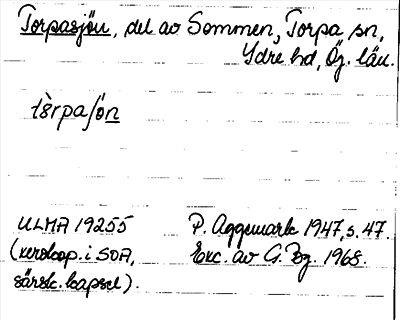 Torpasjön, del av Sommen, Torpa sn,
Ydre hd, Ög. län.
tòrpaʃön
ULMA 19255
(xerokop. i SOA,
särsk. kapsel).
P. Aggemark 1947, s. 47.
Exc. av G. Bg. 1968.